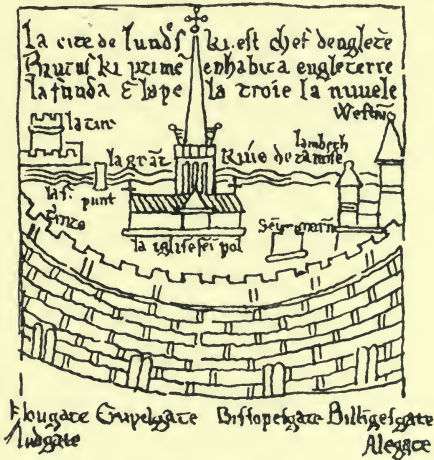 La cite de Lund's ki est chef dengletẽ
Brutus ki primẽ enhabita engleterre
la funda & lape la troie la nuuele
Westm̃
la tur
lambeth
la grãt Riuiẽ de tamise
punt
la iglise sẽi pol
Neugate Crupelgate Bissopesgate Billigesgate
Ludgate Alegate